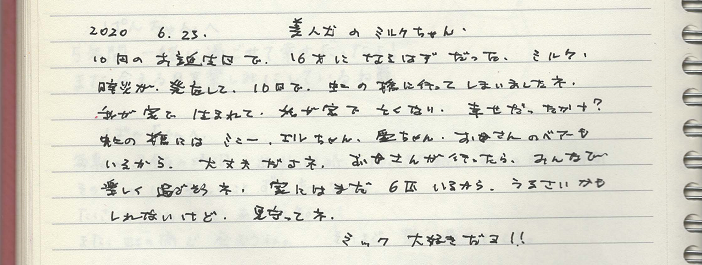 2020 6.23. 美人犬のミルクちゃん.
10月のお誕生日で、16才になるはずだった、ミルク.
腫瘍が、発症して、10日で、虹の橋に行ってしまいましたネ.
我が家で生まれて、我が家で亡くなり、幸せだったかナ?
虹の橋には ミミー、エルちゃん、
ちゃん、お母さんのベアーも
いるから、大丈夫だよネ. お母さんが行ったら、みんなで
楽しく遊ぼうネ. 家にはまだ 6匹いるから、うるさいかも
しれないけど、見守ってネ.
ミック 大好きだヨ!!